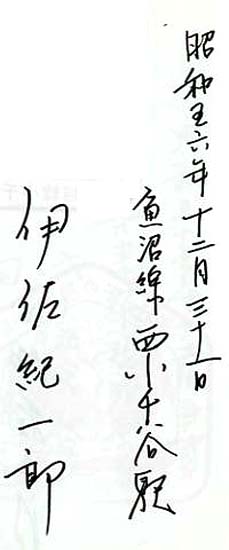 昭和五六年十二月三十一日
魚沼線西小千谷駅
伊佐紀一郎